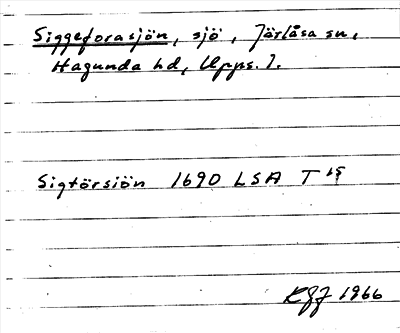 Siggeforasjön, sjö, Järlåsa sn,
Hagunda hd, Upps. l.
Sigtörsiön 1690 LSA T 15
KGJ 1966